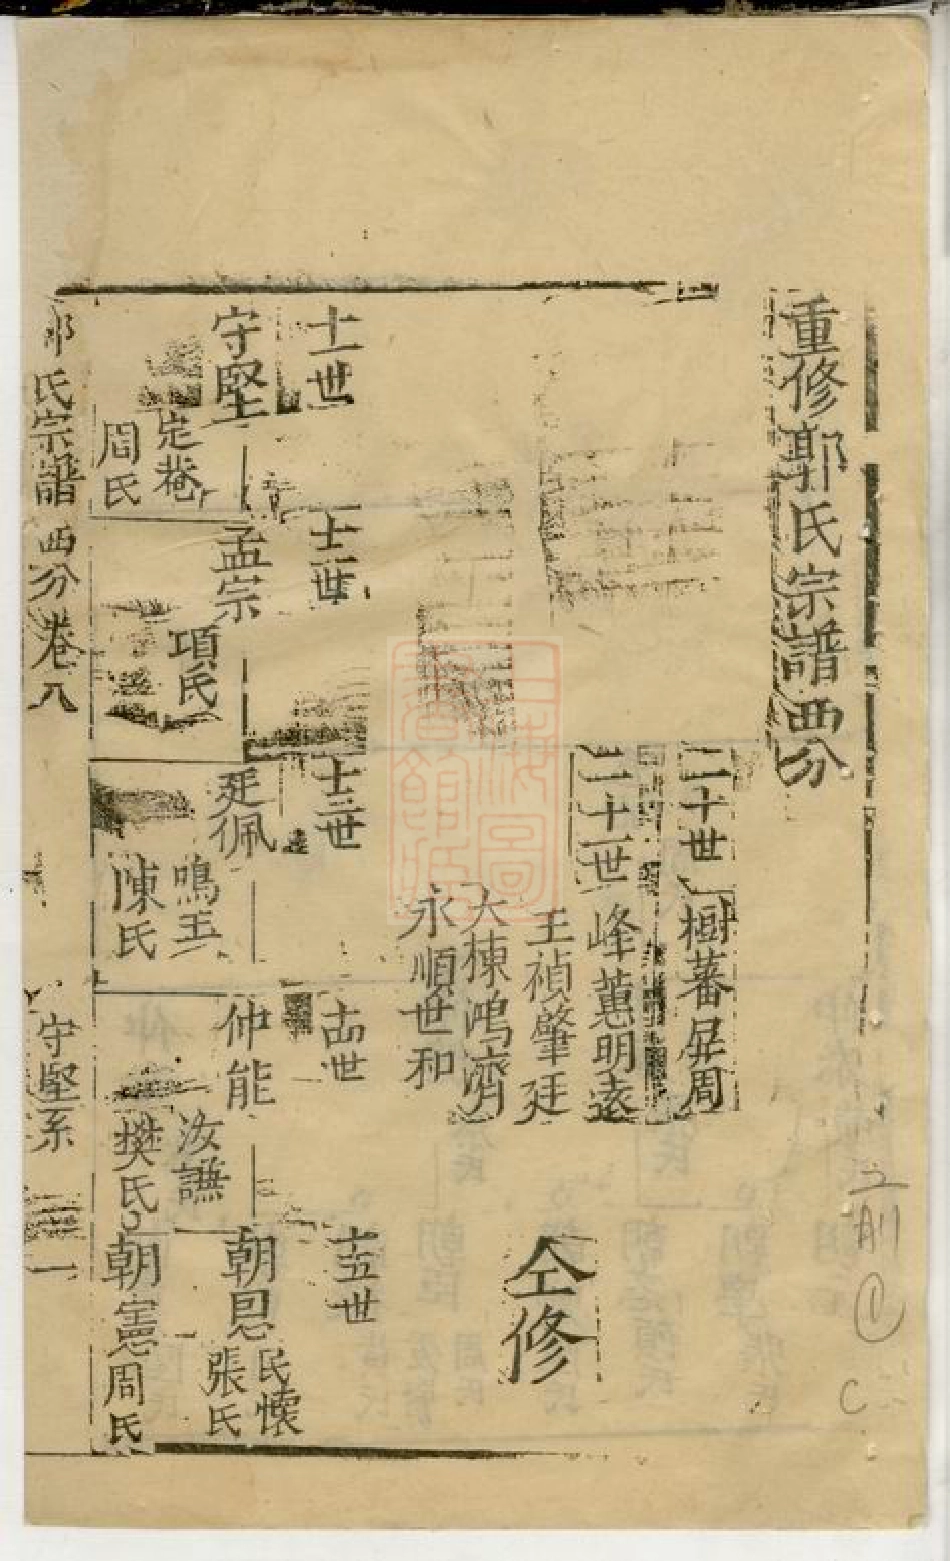 重修郭氏宗譜西分
二十世
樹蕃屏周
二十一世
峰蕙明遠
王禎肇廷
大棟鴻濟
永順世和
仝修
十一世
十二世
十三世
十四世
十五世
守堅
定菴
周氏
孟宗
項氏
延佩
鳴玉
陳氏
仲能
汝謙
樊氏
朝恩
民懷
張氏
朝憲
周氏
郭氏宗譜
西分卷八
守堅系
一